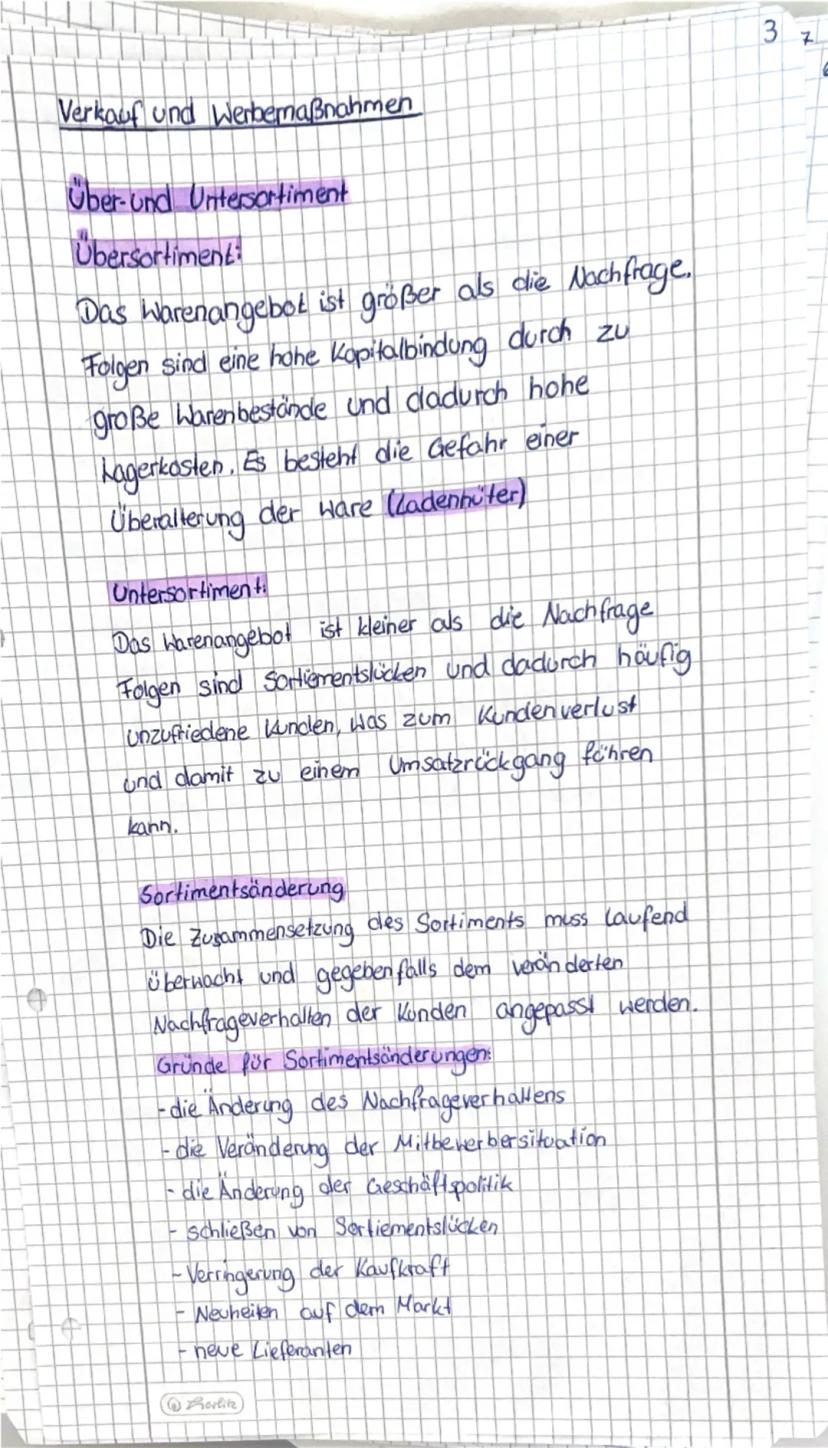 3 7
Verkauf und Werbemaßnahmen
Über- und Untersortiment
Übersortiment:
Das Warenangebot ist größer als die Nachfrage.
Folgen sind eine hohe Kapitalbindung durch zu
große Warenbestände und dadurch hohe
Lagerkosten. Es besteht die Gefahr einer
Überalterung der Ware (Ladenhüter)
Untersortiment:
Das Warenangebot ist kleiner als die Nachfrage
Folgen sind Sortiementslücken und dadurch häufig
unzufriedene Kunden, was zum Kundenverlust
und damit zu einem Umsatzrückgang führen
kann.
Sortimentsänderung
Die Zusammensetzung des Sortiments muss laufend
überwacht und gegebenfalls dem veränderten
Nachfrageverhalten der Kunden angepasst werden.
Gründe für Sortimentsänderungen:
- die Änderung des Nachfrageverhaltens
- die Veränderung der Mitbewerbersituation
- die Änderung der Geschäftspolitik
- schließen von Sortiementslücken
- Verringerung der Kaufkraft
- Neuheiten auf dem Markt
- neue Lieferanten
herlitz